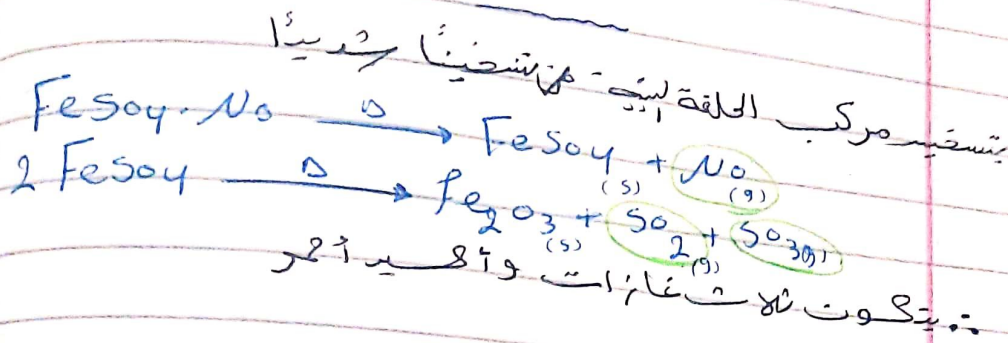 بتسخين مركب الحلقة البنية تسخيناً شديداً
FeSO4.NO —Δ→ FeSO4(s) + NO(g)
2 FeSO4 —Δ→ Fe2O3(s) + SO2(g) + SO3(g)
∴ يتكون ثلاث غازات وأكسيد أحمر